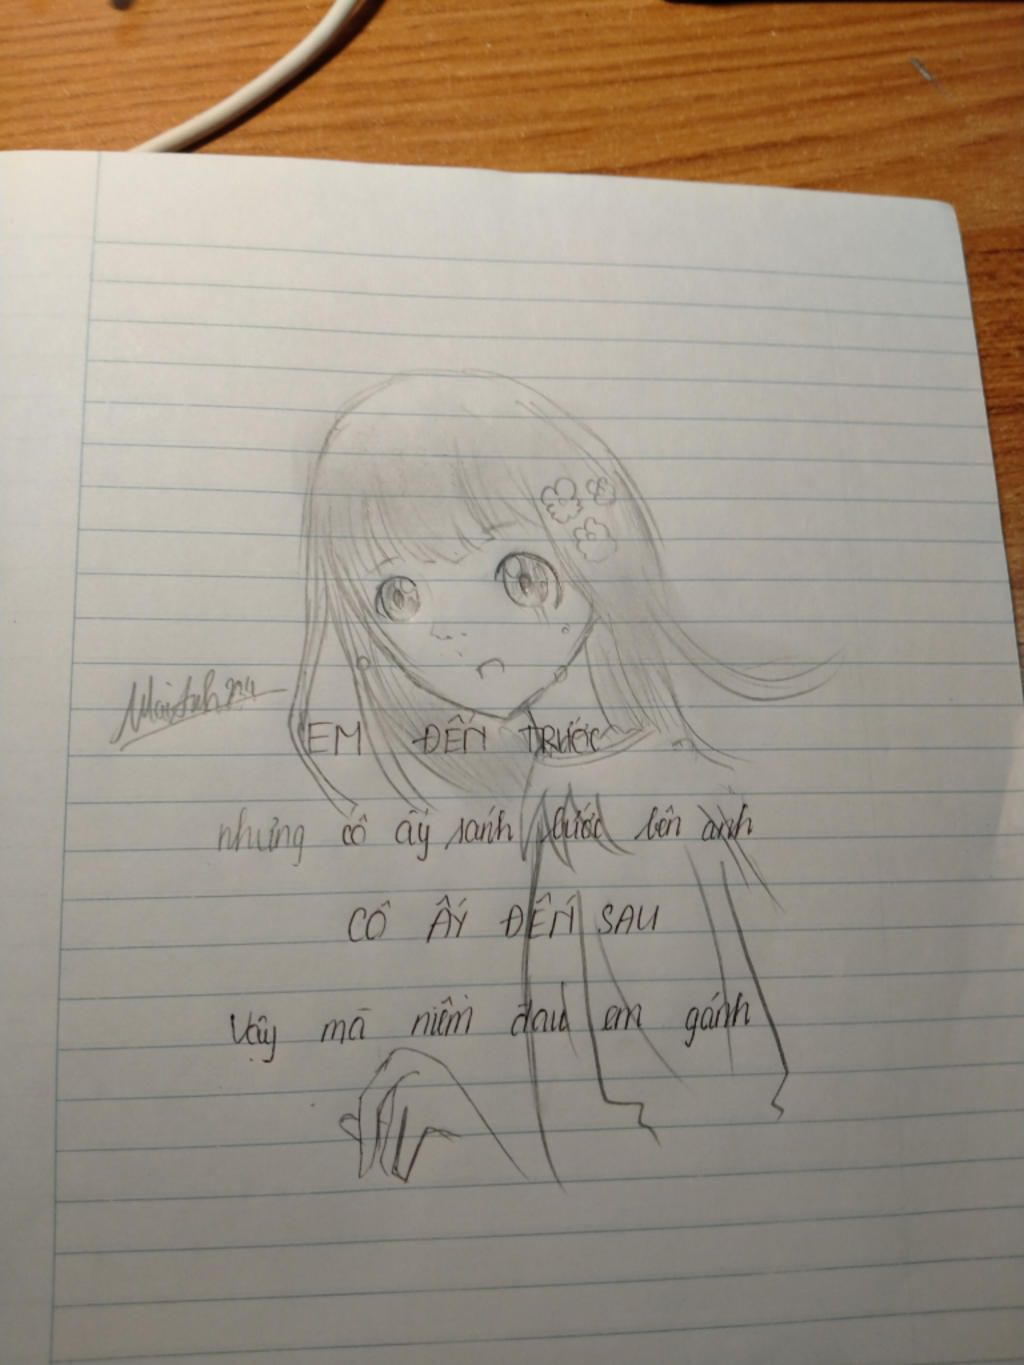 EM ĐẾN TRƯỚC
nhưng cô ấy sánh bước bên anh
CÔ ẤY ĐẾN SAU
Vậy mà niềm đau em gánh